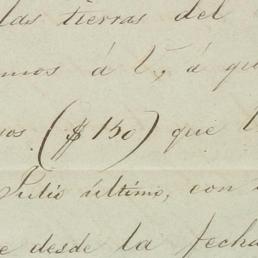 las tierras del
mos á V, á qu
sos ($150) que
Julio último, con
e desde la fecha